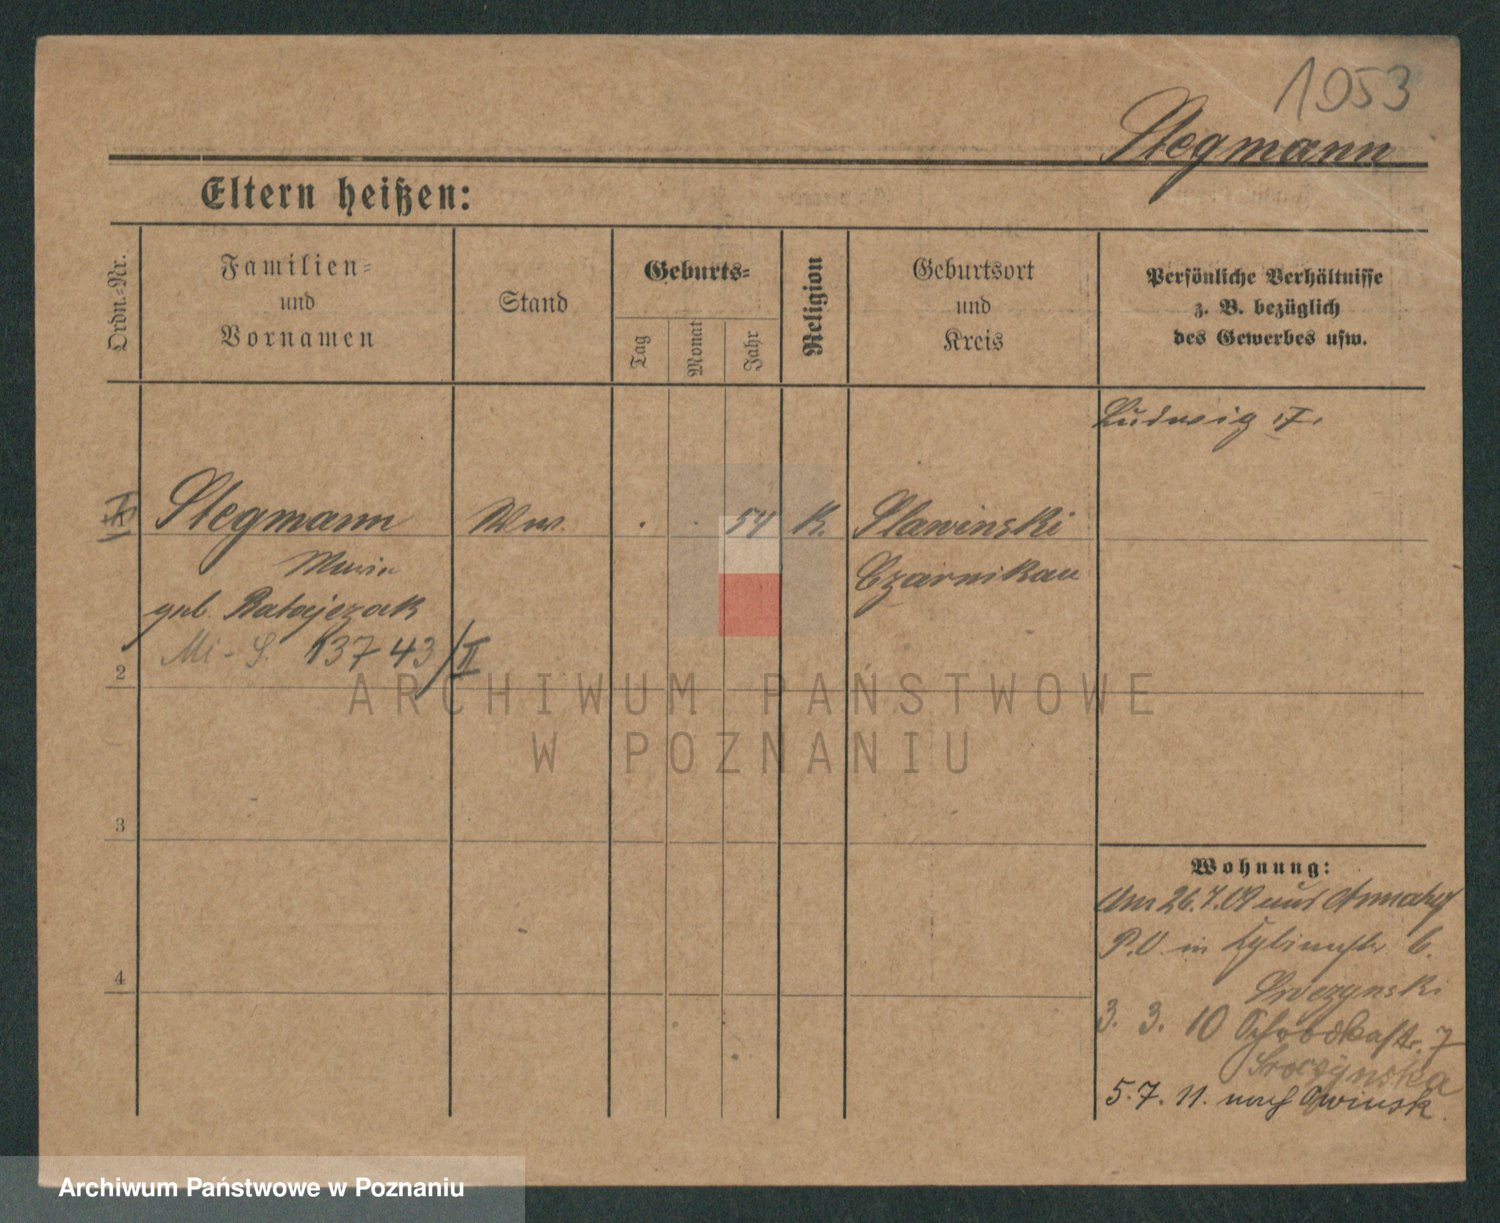 1053
Stegmann
Eltern heißen:
Ordn.-Nr.
Familien-
und
Vornamen
Stand
Geburts-
Tag
Monat
Jahr
Religion
Geburtsort
und
Kreis
Persönliche Verhältnisse
z. B. bezüglich
des Gewerbes usw.
Ludwig
Stegmann Ww. 54 K. Slawinski
Maria Czarnikau
geb. Ratajczak
Mi-S. 13743/II
2
3
4
ARCHIWUM PAŃSTWOWE
W POZNANIU
Wohnung:
Am 26.7.09 aus
P.O. in
Sroczynski
3. 3. 10 Schrodkastr. 7
Sroczynska
5.7.11. nach Owinsk
Archiwum Państwowe w Poznaniu